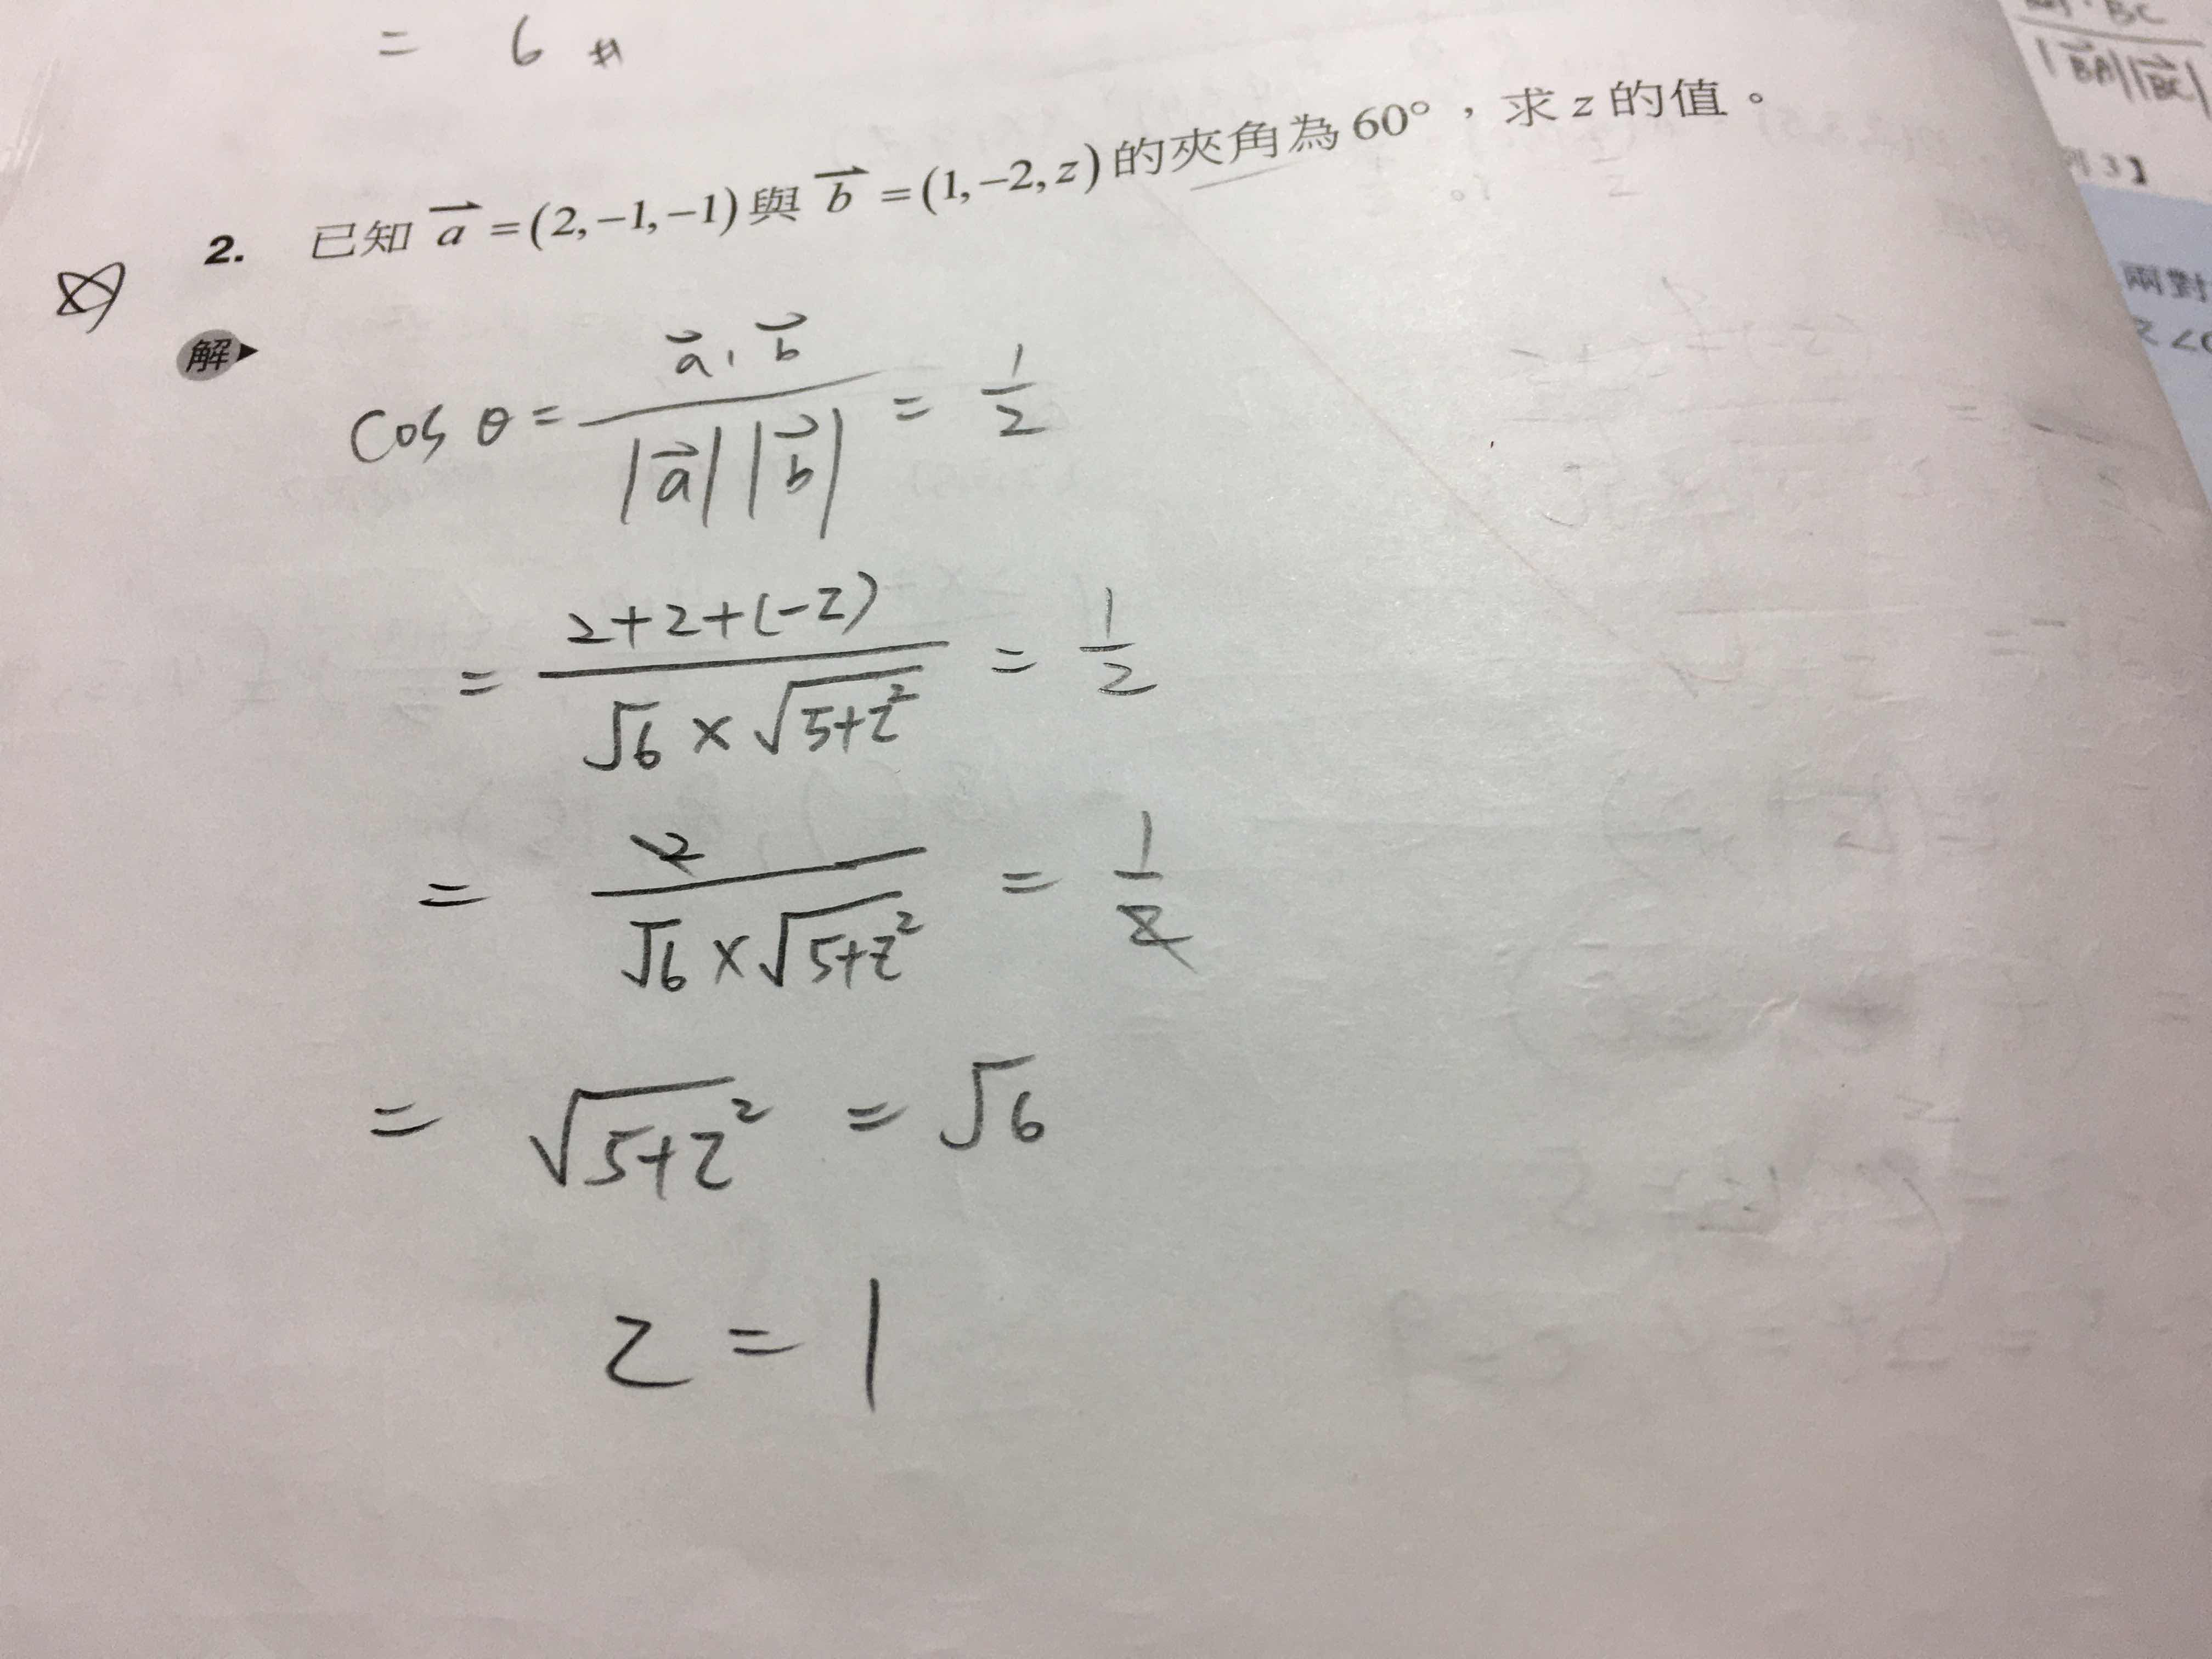 = 6 #
2. 已知 a⃗ = (2, −1, −1) 與 b⃗ = (1, −2, z) 的夾角為 60°，求 z 的值。
解
cos θ = a⃗·b⃗ / |a⃗||b⃗| = 1/2
= 2+2+(−z) / √6 × √5+z² = 1/2
= 2 / √6 × √5+z² = 1/2
= √5+z² = √6
z = 1
BC
|BA||BC|
例3】
兩對